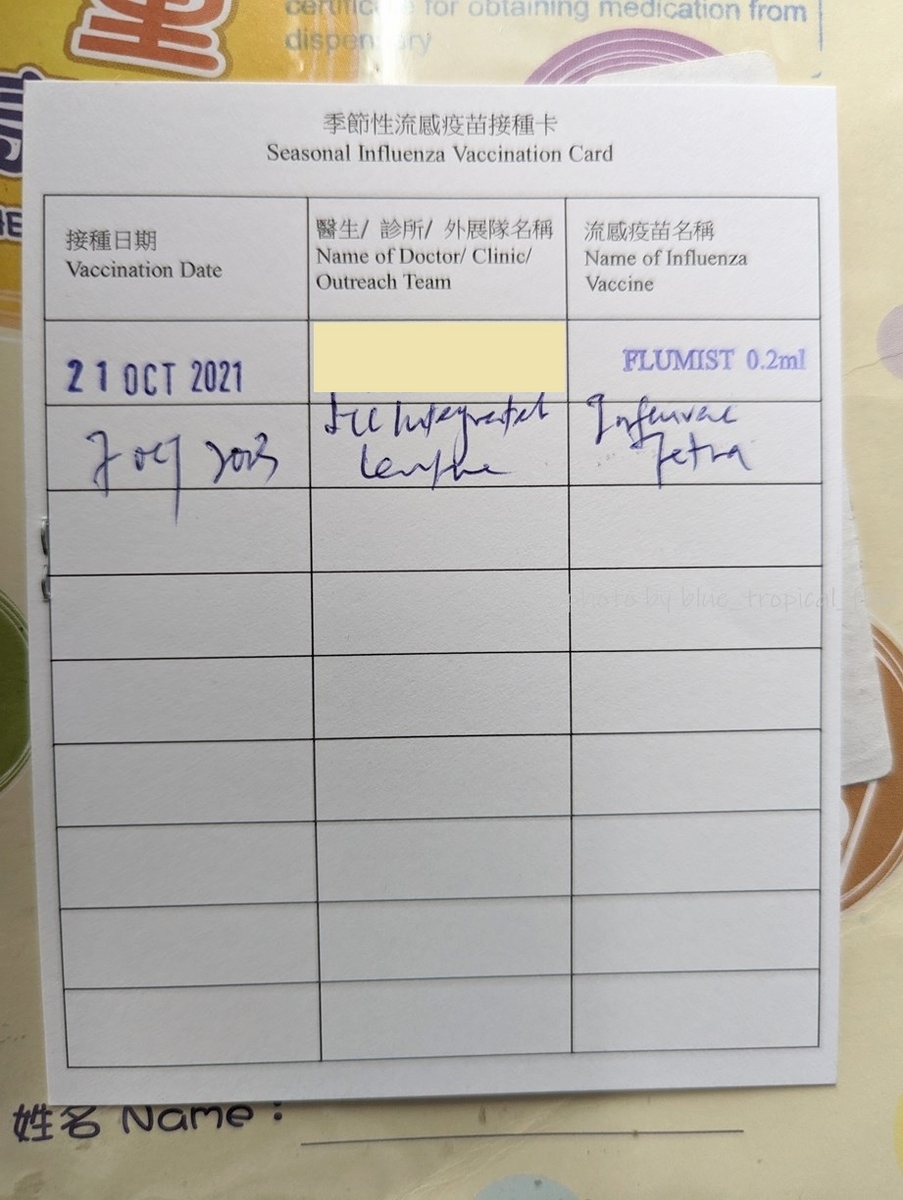 certificate for obtaining medication from
dispensary
季節性流感疫苗接種卡
Seasonal Influenza Vaccination Card
接種日期
Vaccination Date
醫生/ 診所/ 外展隊名稱
Name of Doctor/ Clinic/
Outreach Team
流感疫苗名稱
Name of Influenza
Vaccine
21 OCT 2021
FLUMIST 0.2ml
7 Oct 2023
Integrated
Influvac
Tetra
photo by blue_tropical_
姓名 Name :